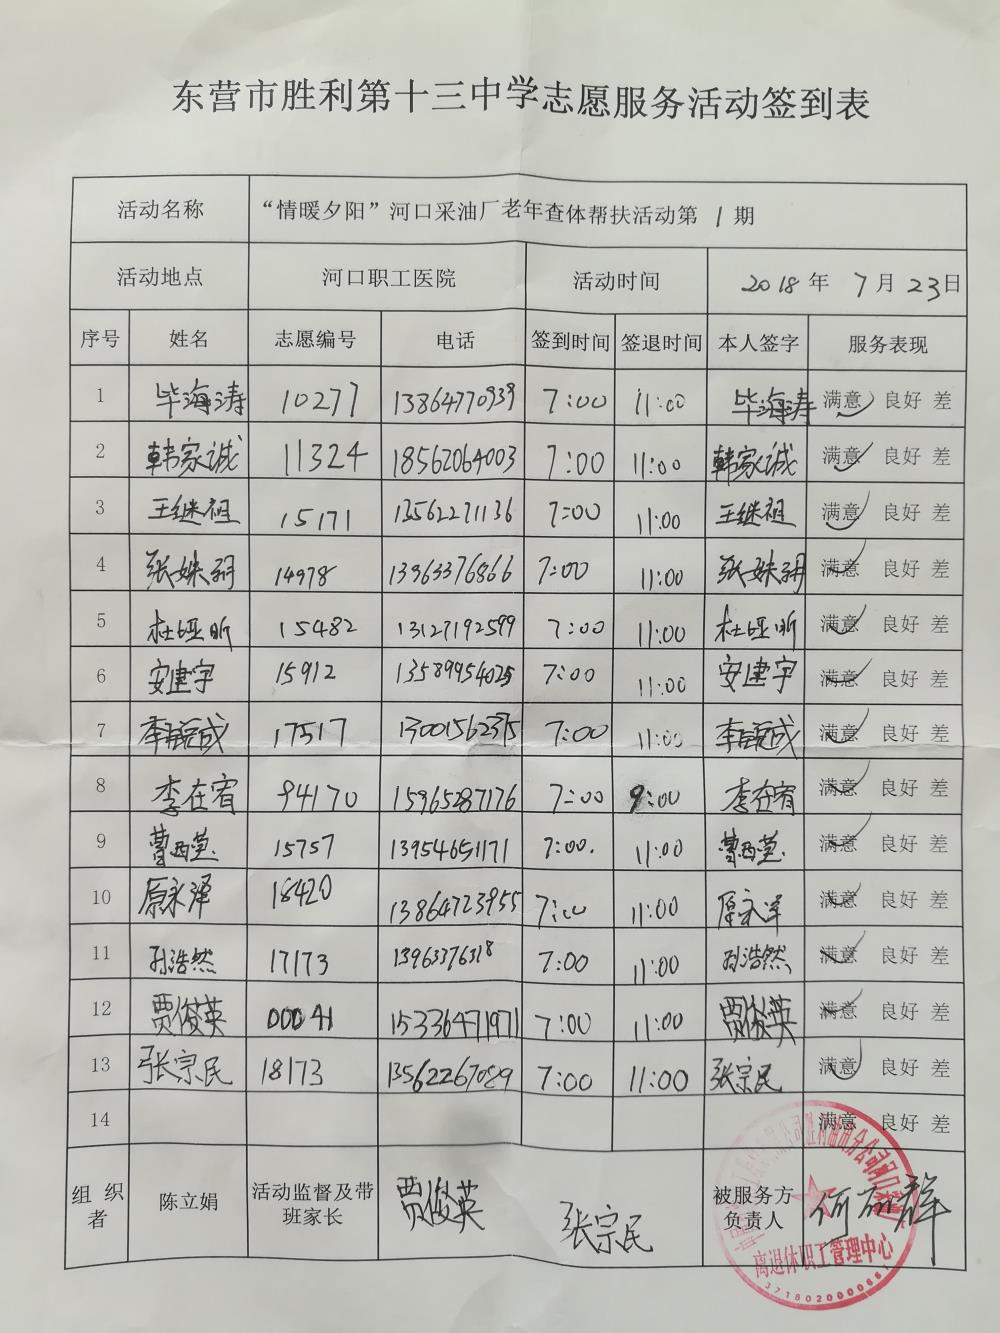 东营市胜利第十三中学志愿服务活动签到表
活动名称 “情暖夕阳”河口采油厂老年查体帮扶活动第 1 期
活动地点 河口职工医院 活动时间 2018 年 7 月 23 日
序号 姓名 志愿编号 电话 签到时间 签退时间 本人签字 服务表现
1 毕海涛 10277 13864770939 7:00 11:00 毕海涛 满意 良好 差
2 韩家诚 11324 18562064003 7:00 11:00 韩家诚 满意 良好 差
3 王继祖 15171 13562271136 7:00 11:00 王继祖 满意 良好 差
4 张姝玥 14978 13963376866 7:00 11:00 张姝玥 满意 良好 差
5 杜垭昕 15482 13127192599 7:00 11:00 杜垭昕 满意 良好 差
6 安建宇 15912 13589954025 7:00 11:00 安建宇 满意 良好 差
7 17517 13001562375 7:00 11:00 满意 良好 差
8 李在宥 94170 15965287176 7:00 9:00 李在宥 满意 良好 差
9 曹西莹 15757 13954651171 7:00 11:00 曹西莹 满意 良好 差
10 原永泽 18420 13864723955 7:00 11:00 原永泽 满意 良好 差
11 孙浩然 17173 13963376318 7:00 11:00 孙浩然 满意 良好 差
12 贾俊英 00041 15336471971 7:00 11:00 贾俊英 满意 良好 差
13 张宗民 18173 13562267089 7:00 11:00 张宗民 满意 良好 差
14 满意 良好 差
组 织 者 陈立娟 活动监督及带班家长 贾俊英 张宗民 被服务方负责人 何 群
离退休职工管理中心
3718020000661